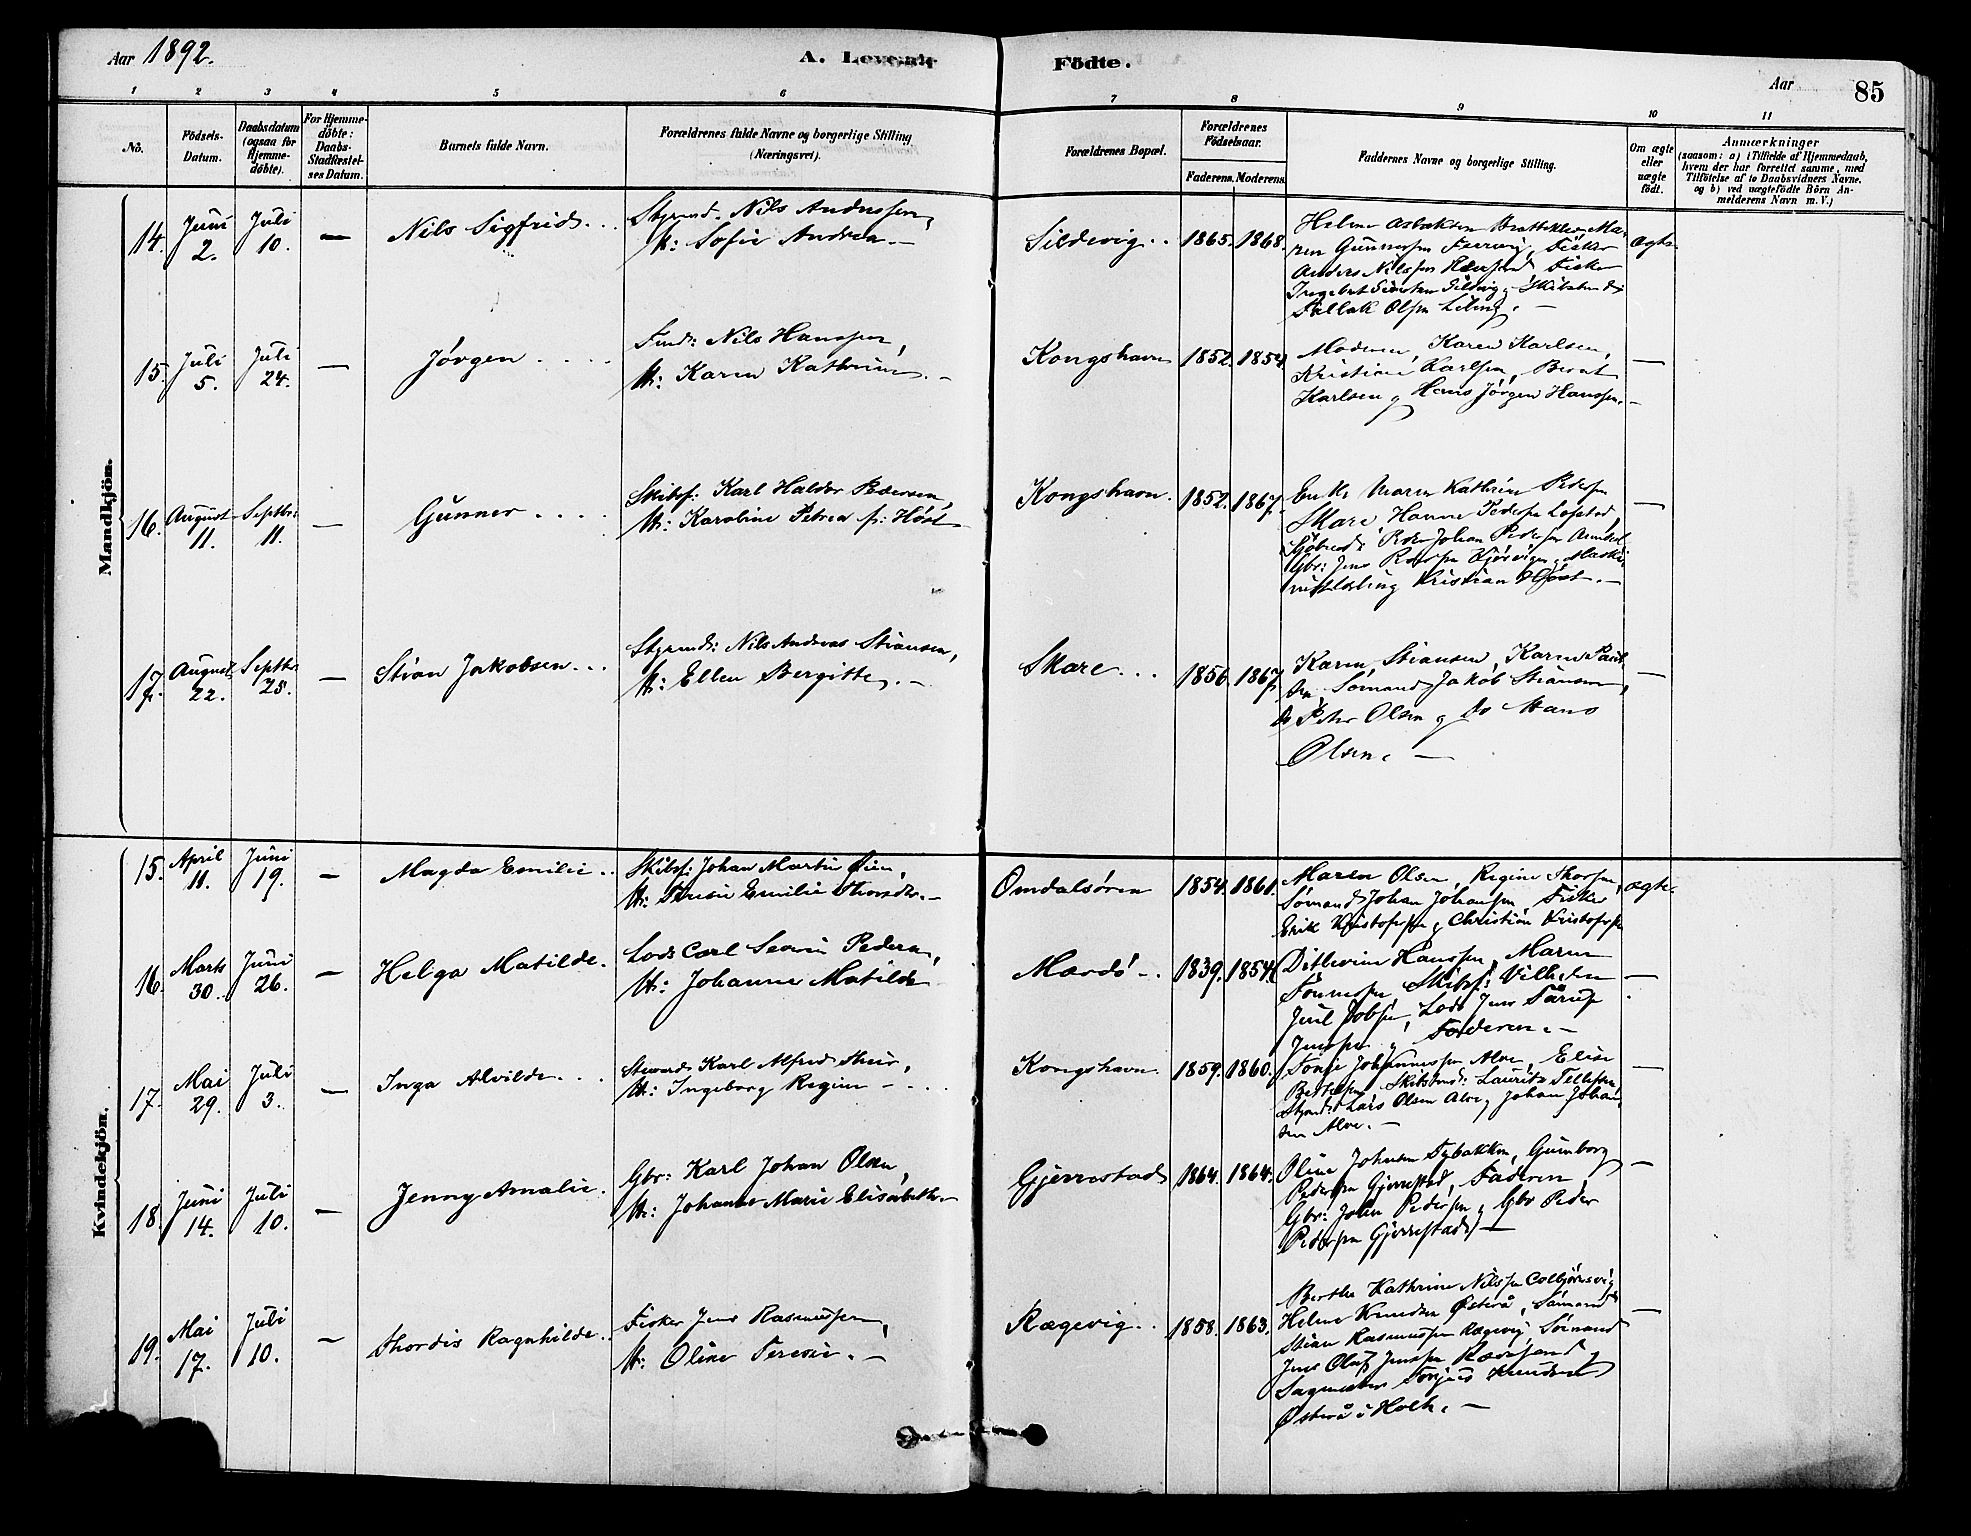 Aar 1892.
A. Levende
Födte.
Aar
85
1 2 3 4 5 6 7 8 9 10 11
No.
Födsels-
Datum.
Daabsdatum
(ogsaa for
Hjemme-
döbte).
For Hjemme-
döbte:
Daabs-
Stadfæstel-
ses Datum.
Barnets fulde Navn.
Forældrenes fulde Navne og borgerlige Stilling
(Næringsvei).
Forældrenes Bopæl.
Forældrenes
Födselsaar.
Faderens. Moderens.
Faddernes Navne og borgerlige Stilling.
Om ægte
eller
uægte
födt.
Anmærkninger
(saasom: a) i Tilfælde af Hjemmedaab,
hvem der har forrettet samme, med
Tilföielse af to Daabsvidners Navne,
og b) ved uægtefödte Börn An-
melderens Navn m. V.)
Mandkjön.
14. Juni 2. Juli 10. — Nils Sigfrid...
Styrmd. Nils Anderssen,
H: Sofie Andrea. —
Sildevig.. 1865. 1868.
Anders Nilssen
Fallak Olsen
ægte.
15. Juli 5. Juli 24. — Jörgen....
Nils Hanssen,
H: Karen Kathrine. —
Kongshavn 1852. 1854.
Moderen, Karen Karlsen,
Kristine Karlsen, Berot
Karlsen og Hans Jörgen Hanssen. —
—
16. August 11. Septbr: 11. — Gunner....
Skibsf: Karl Haldor Pedersen,
H: Karoline Petrea f: Höst
Kongshavn. 1852. 1867.
Enke Maren Kathrine Pedersen
Skare, Hanne Pedersen
Peder Johan Pedersen
Gbr: Jens Pedersen
Kristian Höst. —
—
17. August 22. Septbr: 25. — Stian Jakobsen...
Styrmd: Nils Andreas Stiansen,
H: Ellen Bergitte. —
Skare... 1856. 1867.
Karen Stiansen, Karen Paul-
sen, Sömand Jakob Stiansen,
do Peter Olsen og do Hans
Olsen. —
—
Kvindekjön.
15. April 11. Juni 19. — Magda Emilie..
Skibsf: Johan Martin
H: Teresie Emilie
Omdalsören 1854. 1861.
Maren Olsen, Regine
Sömand Johan Johansen, Fisker
Erik Kristofersen og Christian Kristofersen
ægte.
16. Marts 30. Juni 26. — Helga Matilde.
Lods Carl Severin Pedersen,
H: Johanne Matilde
Mærdö —. 1839. 1854.
Ditlevine Hanssen, Maren
Skibsf: Vilhelm
Juul Lods Jens
Jenssen og Faderen. —
—
17. Mai 29. Juli 3. — Inga Alvilde...
Steward Karl Alfred
H: Ingeborg Regine —...
Kongshavn. 1859. 1860.
Johannessen Alve, Elise
Skibsbmd: Laurits Tellefsen,
Styrmd: Lars Olsen Alve og Johan Johan-
sen Alve. —
—
18. Juni 14. Juli 10. — Jenny Amalie.
Gbr: Karl Johan Olsen,
H: Johanne Marie Elisabeth. —
Gjerrestad 1864. 1864.
Oline Johnsen Gunborg
Pedersen Gjerrestad, Faderen,
Gbr: John Pedersen og Gbr Peder
Pedersen Gjerrestad —
—
19. Mai 17. Juli 10. — Thordis Ragnhilde..
Fisker Jens Rasmussen,
H: Oline Teresie. —
Rægevig.. 1858. 1863.
Berthe Kathrine Nilssen Colbjörnsvig
Helene Knudsen Österå, Sömand
Stian Rasmussen Rægevig, Sömand
Jens Oluf Jenssen Rævesand,
Sagmester Torjus Knudsen
Österå i Holt. —
—